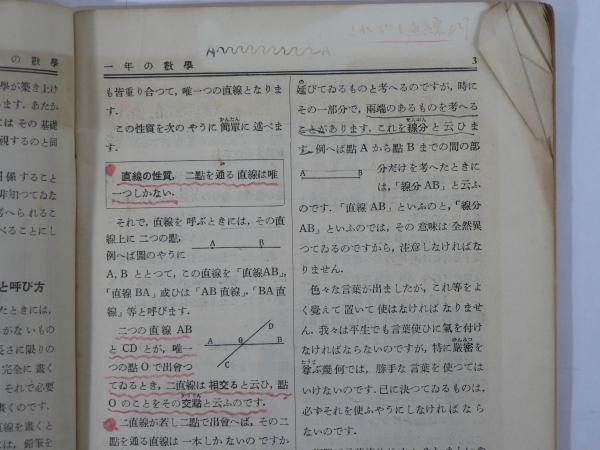 の數學
學が築き上げ
ます. あたか
にはその基礎
視するのと同
關係すること
非知つてゐな
考へられるこ
べることにし
と呼び方
たときには,
がないもの
長さに限りの
完全に畫く
それで必要
畫くのです.
直線を畫くと
には, 鉛筆を
一年の數學
3
A
A
も皆重り合つて, 唯一つの直線となりま
す.
この性質を次のやうに簡單に述べま
かんたん
す.
直線の性質. 二點を通る直線は唯
一つしかない.
それで, 直線を呼ぶときには, その直
線上に二つの點,
例へば圖のやうに
A B
A, B ととつて, この直線を「直線AB」,
「直線 BA」或ひは「AB 直線」,「BA 直
線」等と呼びます.
二つの直線 AB
と CD とが, 唯一
つの點 O で出會つ
A O B
C
D
てゐるとき, 二直線は相交ると云ひ, 點
O のことをその交點と云ふのです.
二直線が若し二點で出會へば, その二
點を通る直線は一本しかないのですか
延びてゐるものと考へるのですが, 時に
その一部分で, 兩端のあるものを考へる
ことがあります. これを線分と云ひま
せんぶん
す. 例へば點 A から點 B までの間の部
分だけを考へたときに
は,「線分 AB」と云ふ
A B
のです.「直線 AB」といふのと,「線分
AB」といふのでは, その意味は全然異
つてゐるのですから, 注意しなければな
りません.
色々な言葉が出ましたが, これ等をよ
く覺えて置いて使はなければなりませ
ん. 我々は平生でも言葉使ひに氣を付け
なければならないのですが, 特に嚴密を
げんみつ
尊ぶ幾何では, 勝手な言葉を使つては
いけないのです. 已に決つてゐるものは,
必ずそれを使ふやうにしなければなら
ないのです.